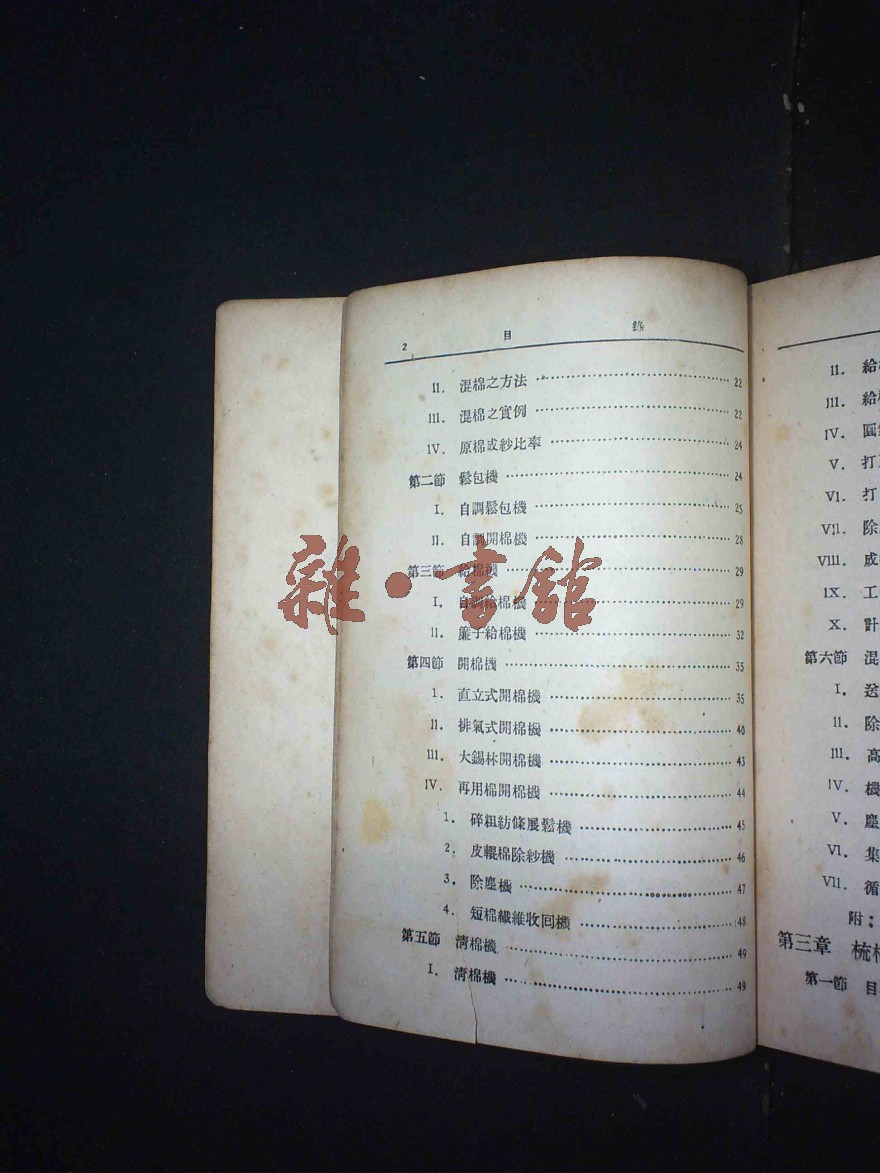 2 目 錄
II. 混棉之方法 22
III. 混棉之實例 22
IV. 原棉成紗比率 24
第二節 鬆包機 24
I. 自調鬆包機 25
II. 自調開棉機 28
第三節 給棉機 29
I. 自調給棉機 29
II. 簾子給棉機 32
第四節 開棉機 35
I. 直立式開棉機 35
II. 排氣式開棉機 40
III. 大錫林開棉機 43
IV. 再用棉開棉機 44
1. 碎粗紡條展鬆機 45
2. 皮輥棉除紗機 46
3. 除塵機 47
4. 短棉纖維收回機 48
第五節 清棉機 49
I. 清棉機 49
雜·書館
II. 給
III. 給
IV. 圓
V. 打
VI. 打
VII. 除
VIII. 成
IX. 工
X. 計
第六節 混
I. 送
II. 除
III. 高
IV. 機
V. 塵
VI. 集
VII. 循
附:
第三章 梳棉
第一節 目